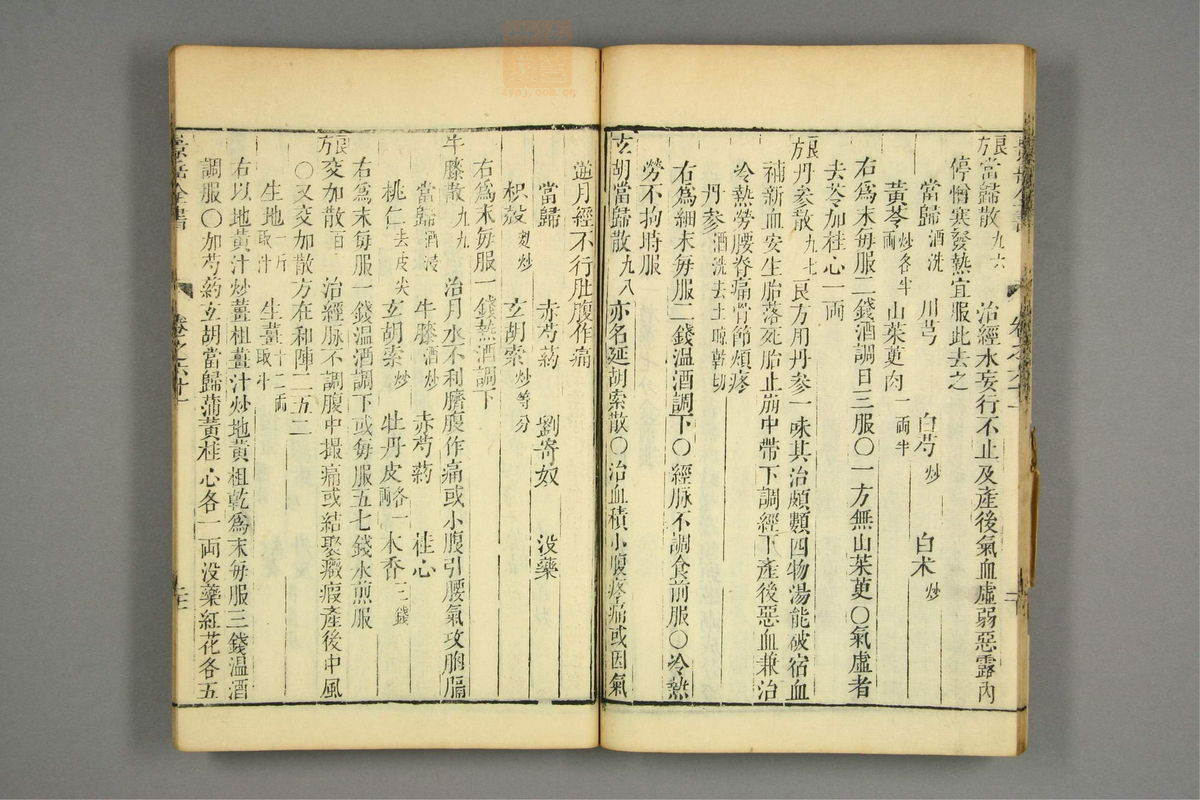 良方當歸散九六　治經水妄行不止及產後氣血虛弱惡露內
停憎寒發熱宜服此去之
當歸酒洗　川芎　白芍炒　白术炒
黃芩炒各半兩　山茱萸肉一兩半
右爲末每服二錢酒調日三服〇一方無山茱萸〇氣虛者
去芩加桂心一兩
良方丹參散九七　良方用丹參一味其治頗類四物湯能破宿血
補新血安生胎落死胎止崩中帶下調經下產後惡血兼治
冷熱勞腰脊痛骨節煩疼
丹參酒洗去土晒乾切
右爲細末每服二錢温酒調下〇經脉不調食前服〇冷熱
勞不拘時服
玄胡當歸散九八　亦名延胡索散〇治血積小腹疼痛或因氣
逆月經不行肚腹作痛
當歸　赤芍藥　劉寄奴　没藥
枳殼麩炒　玄胡索炒等分
右爲末每服一錢熱酒調下
牛膝散九九　治月水不利臍腹作痛或小腹引腰氣攻胸膈
當歸酒浸　牛膝酒炒　赤芍藥　桂心
桃仁去皮尖　玄胡索炒　牡丹皮各一兩　木香三錢
右爲末每服一錢温酒調下或每服五七錢水煎服
良方交加散百　治經脉不調腹中撮痛或結聚癥瘕產後中風
〇又交加散方在和陣二五二
生地一斤取汁　生薑十二兩取汁
右以地黃汁炒薑柤薑汁炒地黃柤乾爲末每服三錢温酒
調服〇加芍藥玄胡當歸蒲黃桂心各一兩没藥紅花各五
景岳全書　卷之六十一